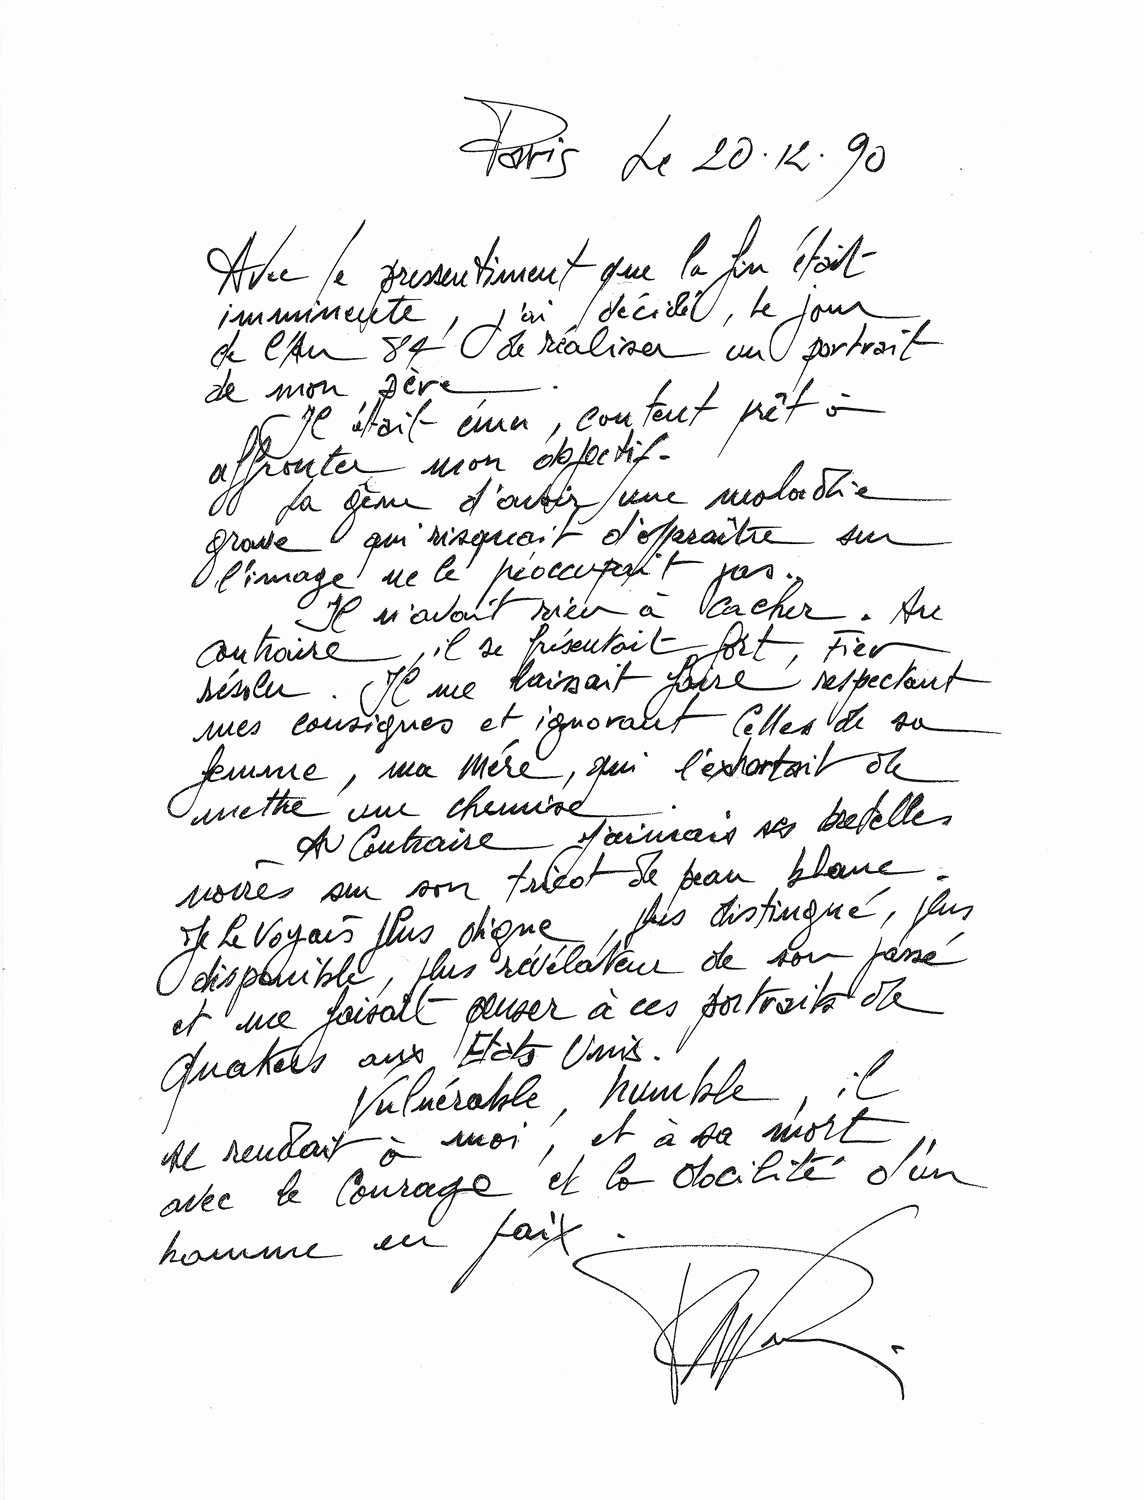 Paris Le 20.12.90
Avec le pressentiment que la fin était
imminente, j'ai décidé, le jour
de l'An 84 de réaliser un portrait
de mon père.
Il était ému, content prêt à
affronter mon objectif.
La gêne d'avoir une maladie
grave qui risquait d'apparaître sur
l'image ne le préoccupait pas..
Il n'avait rien à cacher. Au
contraire, il se présentait fort, Fier
résolu. Il me laissait faire respectant
mes consignes et ignorant celles de sa
femme, ma Mère, qui l'exhortait de
mettre une chemise.
Au Contraire j'aimais ses bretelles
noires sur son tricot de peau blanc.
Je Le Voyais plus digne, plus distingué, plus
disponible, plus révélateur de son passé
et me faisait penser à ces portraits de
Quakers aux Etats Unis.
Vulnérable, humble, il
se rendait à moi, et à sa mort,
avec le Courage et la docilité d'un
homme en paix.